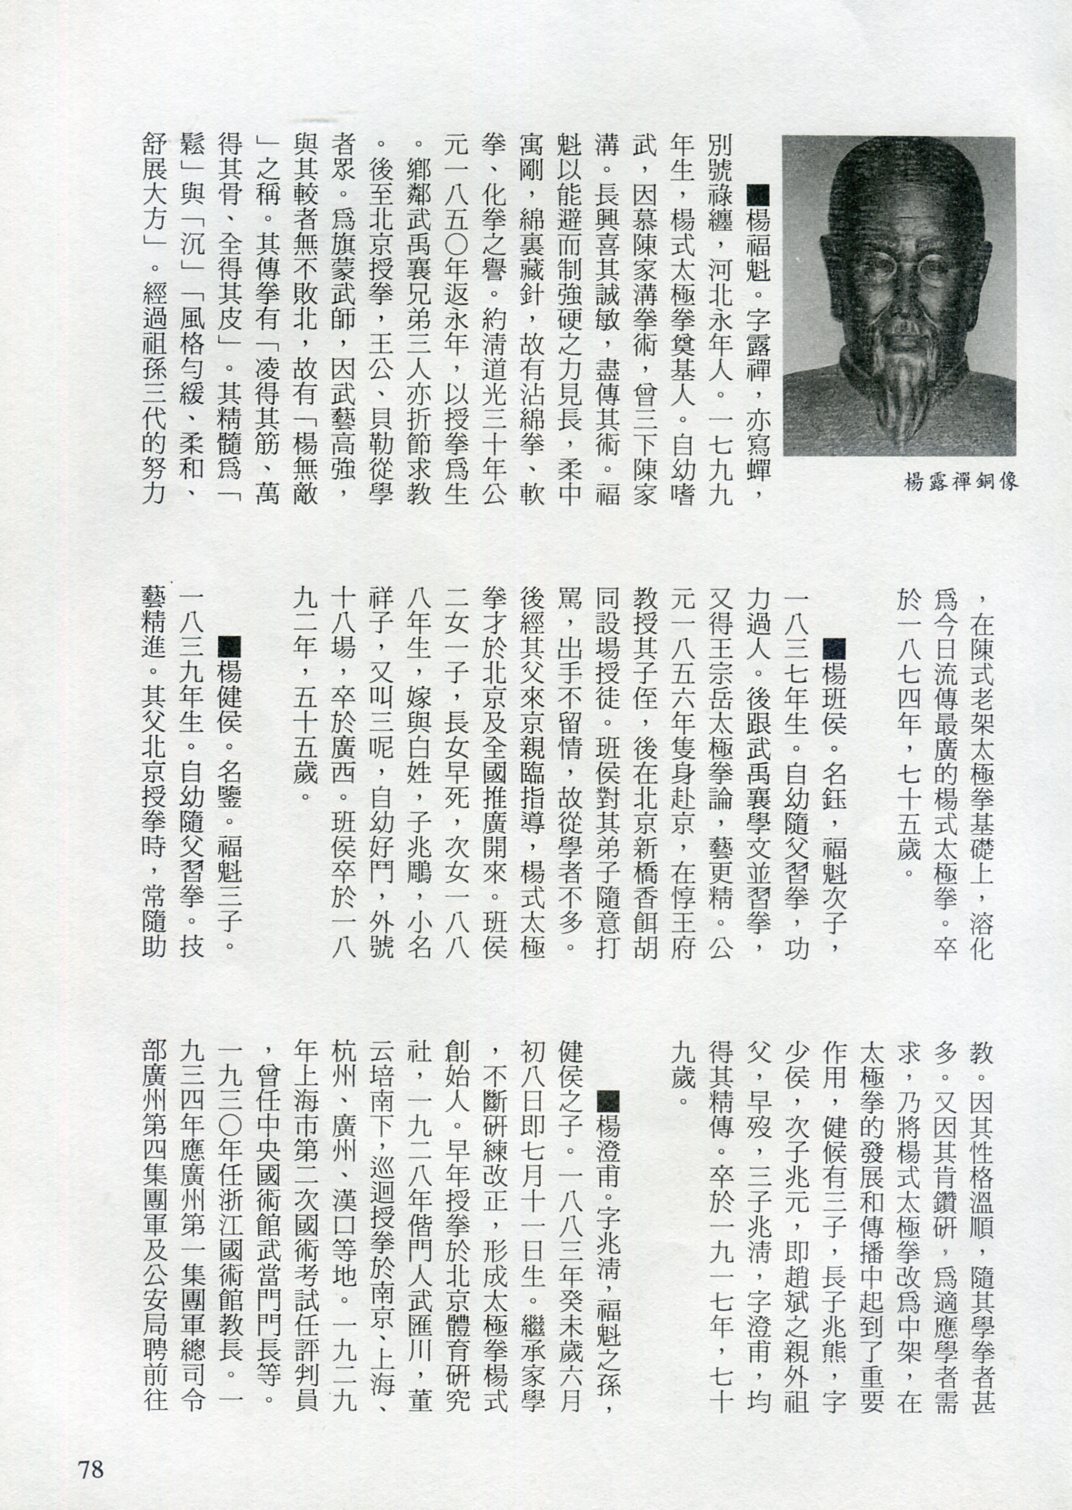 楊露禪銅像
■楊福魁。字露禪，亦寫蟬，
別號祿纏，河北永年人。一七九九
年生，楊式太極拳奠基人。自幼嗜
武，因慕陳家溝拳術，曾三下陳家
溝。長興喜其誠敏，盡傳其術。福
魁以能避而制強硬之力見長，柔中
寓剛，綿裏藏針，故有沾綿拳、軟
拳、化拳之譽。約淸道光三十年公
元一八五〇年返永年，以授拳爲生
。鄉鄰武禹襄兄弟三人亦折節求教
。後至北京授拳，王公、貝勒從學
者眾。爲旗蒙武師，因武藝高強，
與其較者無不敗北，故有「楊無敵
」之稱。其傳拳有「凌得其筋、萬
得其骨、全得其皮」。其精髓爲「
鬆」與「沉」「風格勻緩、柔和、
舒展大方」。經過祖孫三代的努力
，在陳式老架太極拳基礎上，溶化
爲今日流傳最廣的楊式太極拳。卒
於一八七四年，七十五歲。
■楊班侯。名鈺，福魁次子，
一八三七年生。自幼隨父習拳，功
力過人。後跟武禹襄學文並習拳，
又得王宗岳太極拳論，藝更精。公
元一八五六年隻身赴京，在惇王府
教授其子侄，後在北京新橋香餌胡
同設場授徒。班侯對其弟子隨意打
罵，出手不留情，故從學者不多。
後經其父來京親臨指導，楊式太極
拳才於北京及全國推廣開來。班侯
二女一子，長女早死，次女一八八
八年生，嫁與白姓，子兆鵰，小名
祥子，又叫三呢，自幼好鬥，外號
十八場，卒於廣西。班侯卒於一八
九二年，五十五歲。
■楊健侯。名鑒。福魁三子。
一八三九年生。自幼隨父習拳。技
藝精進。其父北京授拳時，常隨助
教。因其性格溫順，隨其學拳者甚
多。又因其肯鑽硏，爲適應學者需
求，乃將楊式太極拳改爲中架，在
太極拳的發展和傳播中起到了重要
作用，健候有三子，長子兆熊，字
少侯，次子兆元，即趙斌之親外祖
父，早歿，三子兆淸，字澄甫，均
得其精傳。卒於一九一七年，七十
九歲。
■楊澄甫。字兆淸，福魁之孫，
健侯之子。一八八三年癸未歲六月
初八日即七月十一日生。繼承家學
，不斷硏練改正，形成太極拳楊式
創始人。早年授拳於北京體育硏究
社，一九二八年偕門人武匯川，董
云培南下，巡迴授拳於南京、上海、
杭州、廣州、漢口等地。一九二九
年上海市第二次國術考試任評判員
，曾任中央國術館武當門門長等。
一九三〇年任浙江國術館教長。一
九三四年應廣州第一集團軍總司令
部廣州第四集團軍及公安局聘前往
78